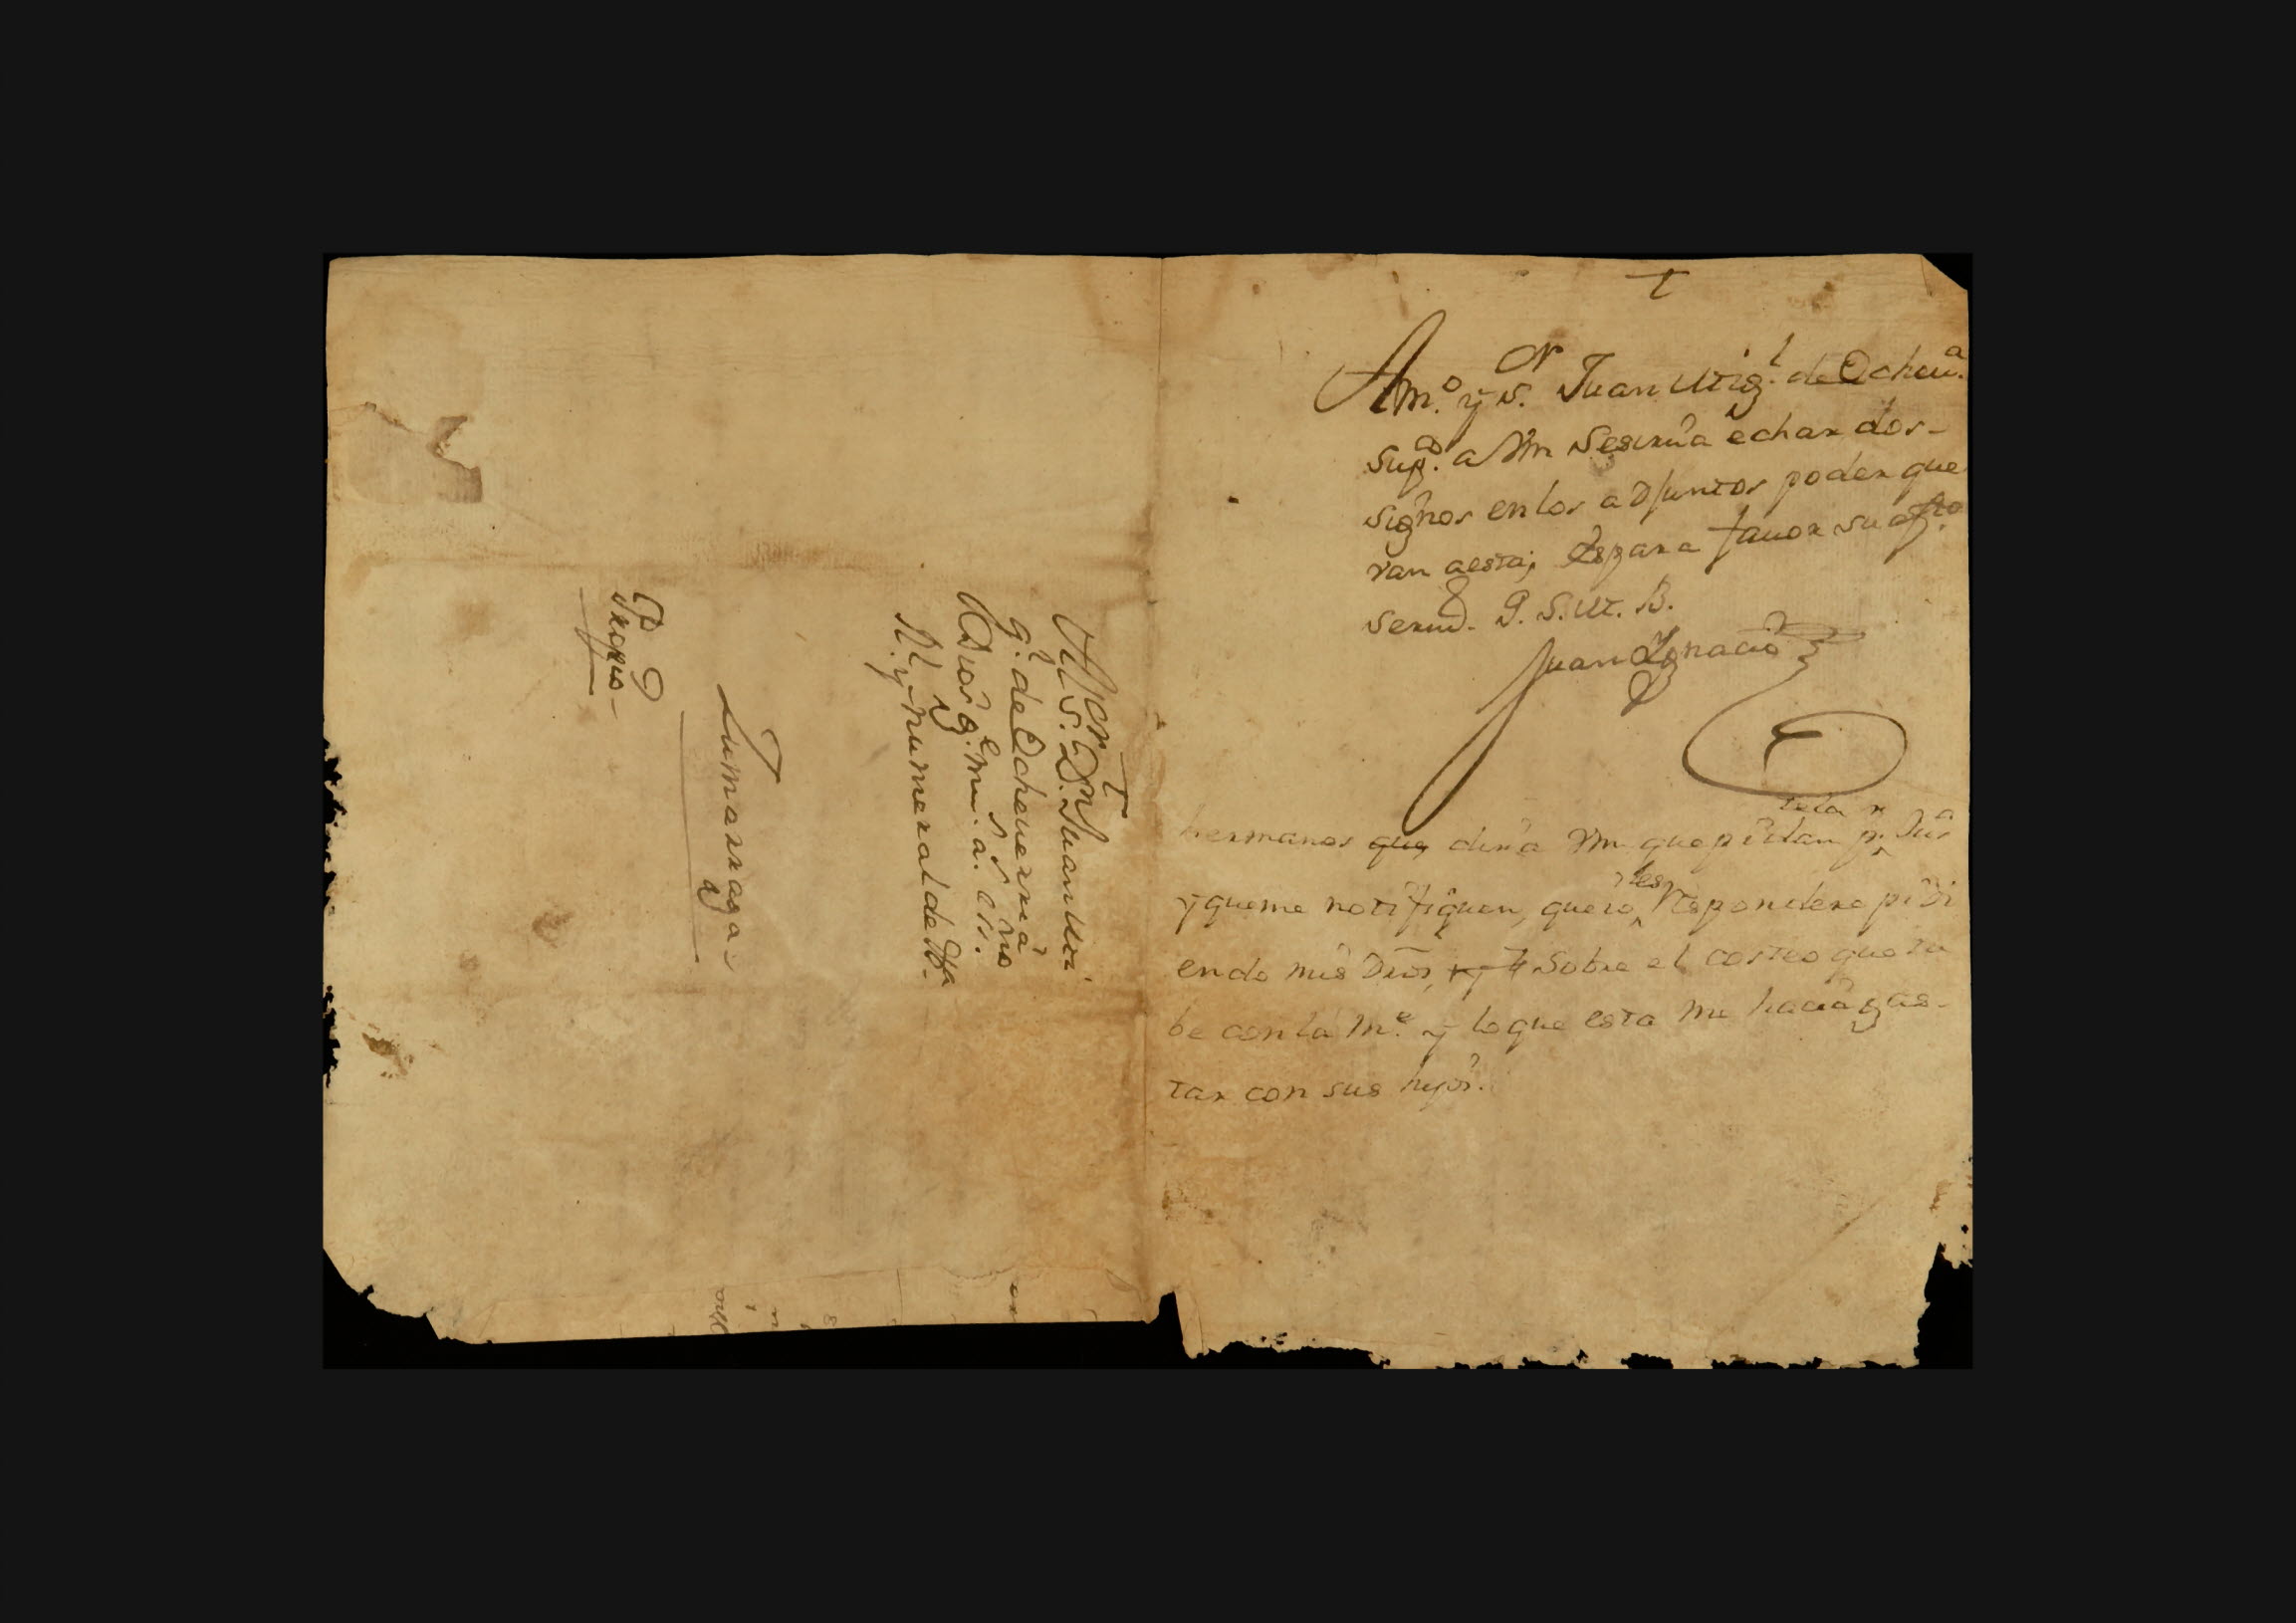 †
Am.º y s.or Juan Mig.l de Echeu.a
sup.co a Vm se sirua echar dos
signos en los adjuntos poder que
van a esta, es para fauor su af.to
seruid. Q. S. M. B.
Juan Ignacio
hermanos que dira Vm que pidan p.r
tela
y que me notifiquen, que io les respondere pidi
endo mis Dros, sobre el costeo que tu
be con la M.e y lo que esta me hacia gas-
tar con sus hijos.
†
Al S.or D.n Juan Mi
g.l de Echeuerria
Dios g.e m.s a.s ess.no
R.l y numeral de
Zumarraga
Propio